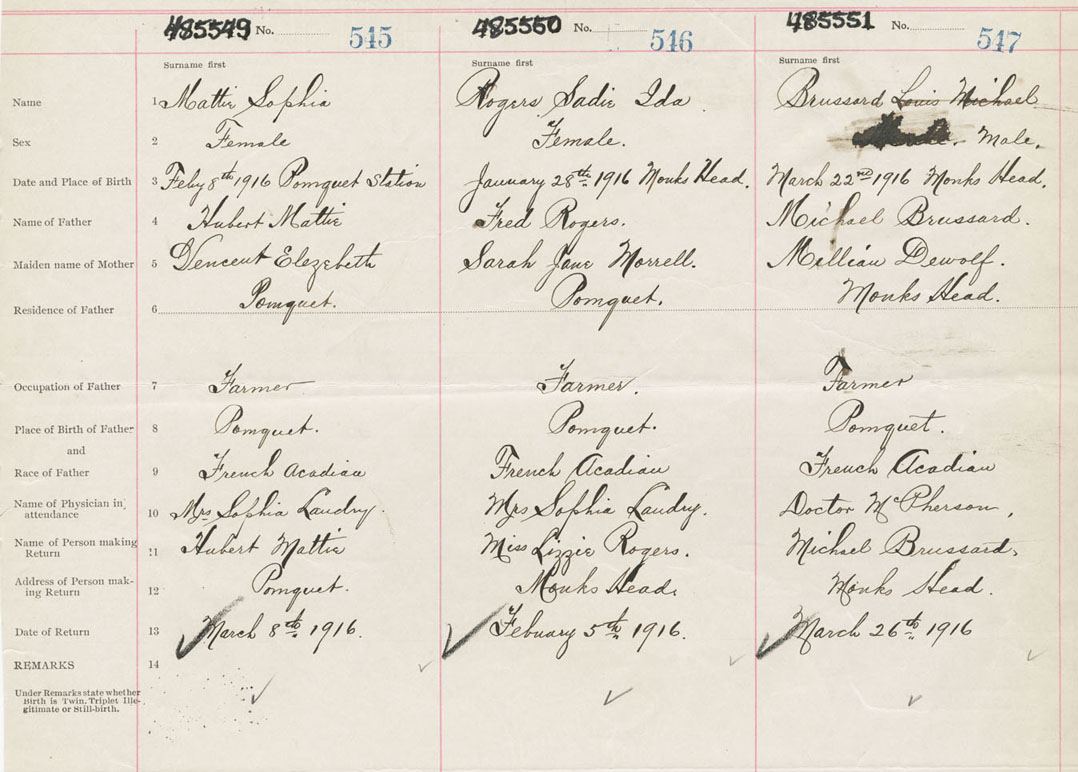 485549 No. 545 485550 No. 546 485551 No. 547
Surname first Surname first Surname first
Name 1 Mattie Sophia Rogers Sadie Ida Brussard Louis Michael
Sex 2 Female Female. Male.
Date and Place of Birth 3 Feby 8th 1916 Pomquet Station January 28th 1916 Monks Head. March 22nd 1916 Monks Head.
Name of Father 4 Hubert Mattie Fred Rogers. Michael Brussard.
Maiden name of Mother 5 Dencent Elezebeth Sarah Jane Morrell. Millian Dewolf.
Residence of Father 6 Pomquet. Pomquet. Monks Head.
Occupation of Father 7 Farmer Farmer. Farmer
Place of Birth of Father 8 Pomquet. Pomquet. Pomquet.
and
Race of Father 9 French Acadian French Acadian French Acadian
Name of Physician in attendance 10 Mrs Sophia Landry. Mrs Sophia Landry. Doctor McPherson,
Name of Person making Return 11 Hubert Mattie Miss Lizzie Rogers. Michael Brussard.
Address of Person mak-
ing Return 12 Pomquet. Monks Head. Monks Head.
Date of Return 13 March 8th 1916. Febuary 5th 1916. March 26th 1916
REMARKS 14
Under Remarks state whether
Birth is Twin, Triplet Ille-
gitimate or Still-birth.